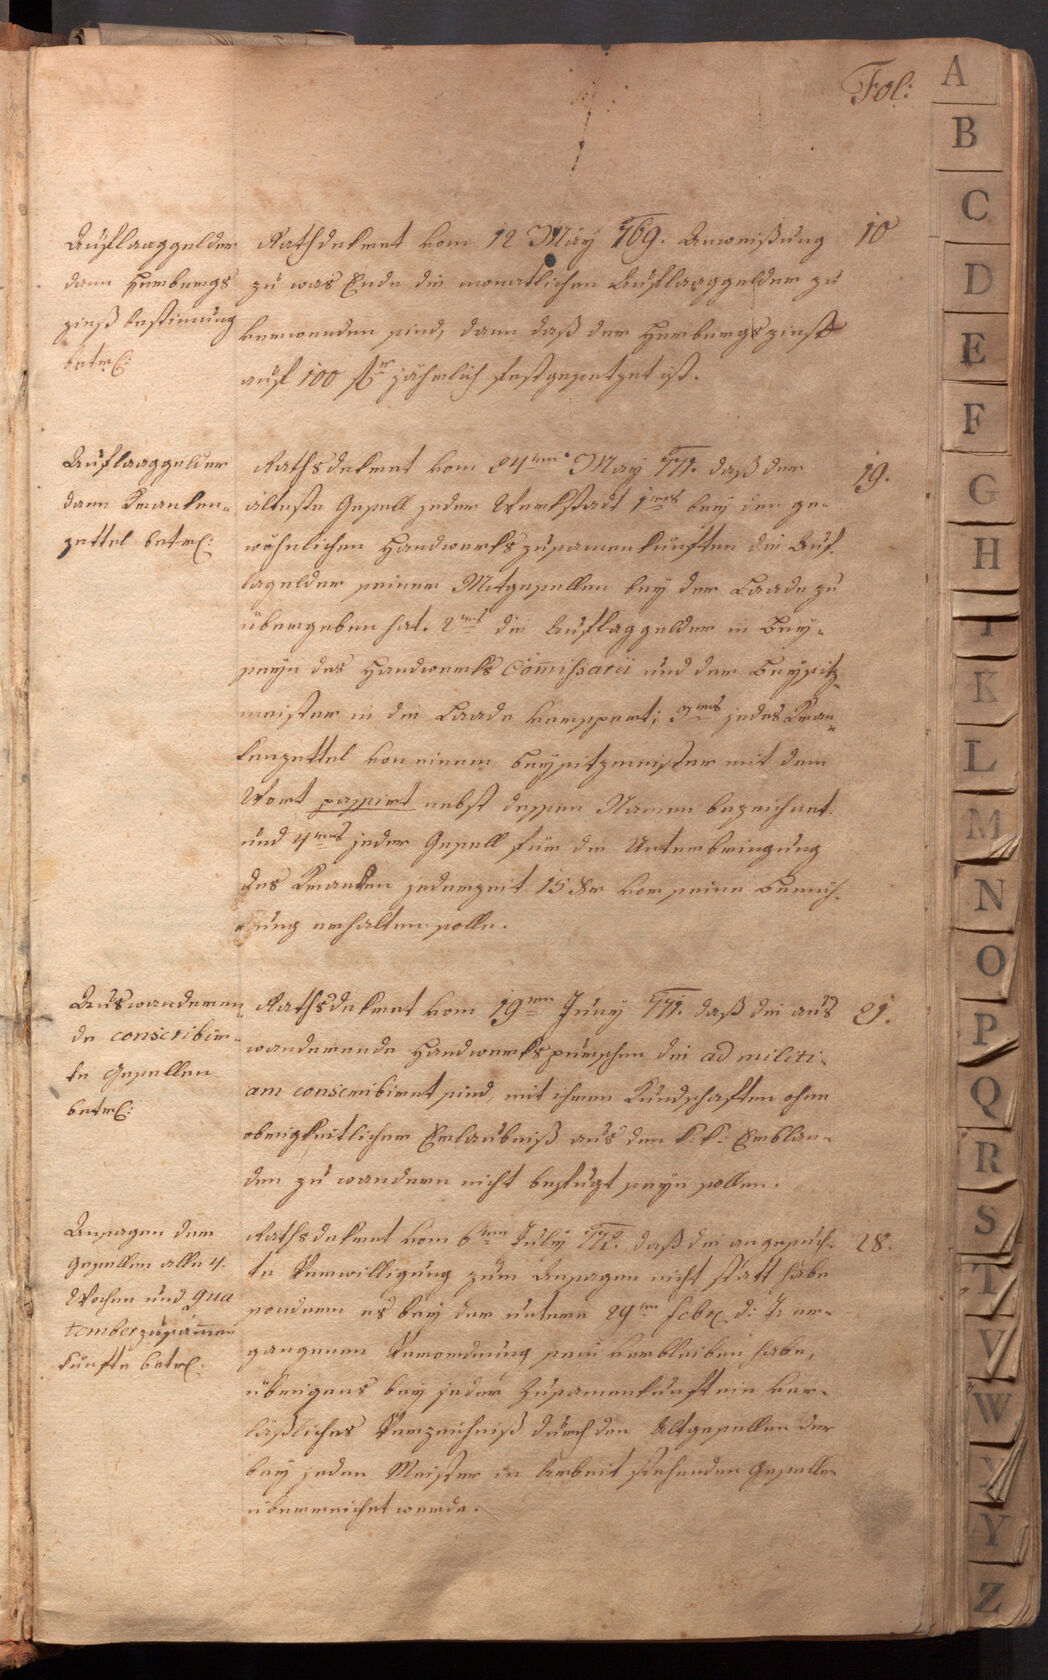 Fol:
Auflaaggelder
dann Herbergs
zinß bestimung
betrl:
Rathsdekret vom 12 May 769. Anweißung
zu was Ende die monatlichen Auflaaggelder zu
verwenden sind, dann daß der Herbergszinß
auf 100 fr jährlich festgesetzet ist.
10
Auflaaggelder
dann Kranken-
zettel betrl:
Rathsdekret vom 24ten May 771. daß der
älteste Gesell jeder Werkstadt 1mo bey den ge-
wöhnlichen Handwerkszusamenkünften die Auf-
laggelder seiner Mitgesellen bey der Laade zu
übergeben hat. 2do die Auflaggelder in Bey-
seyn des Handwerks Comissarii und der Beysitz-
meister in die Laade versperrt; 3tio jedes Kran-
kenzettel von einem Beysitzmeister mit dem
Wort passirt nebst dessen Namen bezeichnet
und 4to jeder Gesell für die Unterbringung
des Kranken jederzeit 15 Xr vor seine Bemüh-
ung erhalten solle.
19.
Auswanderen-
de conscribir-
te Gesellen
betrl:
Rathsdekret vom 19ten Juny 771. daß die aus
wanderende Handwerkspurschen die ad militi-
am conscribiret sind, mit ihren Kundschaften ohne
obrigkeitlicher Erlaubniß aus den k: k: Erblan-
den zu wandern nicht befugt seyn sollen.
21.
Ansagen der
Gesellen alle 4.
Wochen und Qua
tember zusamen
künfte betrl:
Rathsdekret vom 6ten July 772. daß die angesuch-
te Verwilligung zum Ansagen nicht statt habe
sondern es bey der untern 29ten febr. d: J: er-
gangenen Verordnung sein verbleiben habe,
übrigens bey jeder Zusamenkunft ein ver-
läßliches Verzeichniß durch den Altgesellen der
bey jeden Meister in Arbeit stehenden Gesellen
überreichet werde.
28.
A
B
C
D
E
F
G
H
I
K
L
M
N
O
P
Q
R
S
T
V
W
X
Y
Z